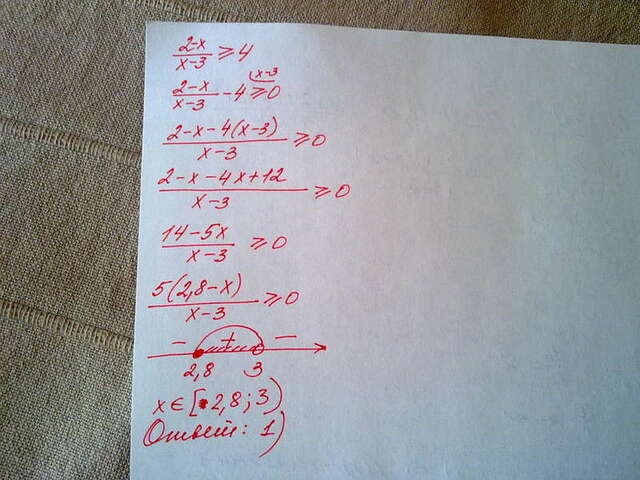 (2-x)/(x-3) ⩾ 4
(2-x)/(x-3) - 4 (x-3 ⩾ 0
(2-x-4(x-3))/(x-3) ⩾ 0
(2-x-4x+12)/(x-3) ⩾ 0
(14-5x)/(x-3) ⩾ 0
(5(2,8-x))/(x-3) ⩾ 0
- + -
2,8 3
x∈[2,8;3)
Ответ: 1)